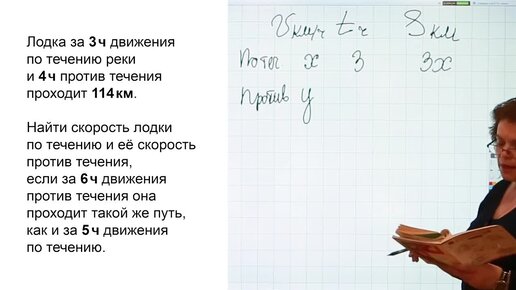 Лодка за 3 ч движения
по течению реки
и 4 ч против течения
проходит 114 км.
Найти скорость лодки
по течению и её скорость
против течения,
если за 6 ч движения
против течения она
проходит такой же путь,
как и за 5 ч движения
по течению.
V км/ч t ч S км
По теч x 3 3x
Против y